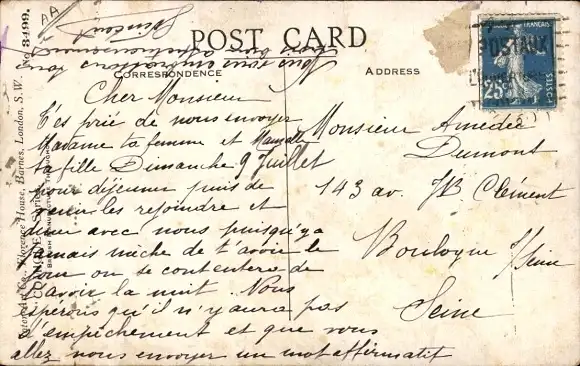 POST CARD
CORRESPONDENCE
ADDRESS
Cher Monsieur
T'es prié de nous envoyer
Madame ta femme et Mamzelle
ta fille Dimanche 9 Juillet
pour déjeuner puis de
venir les rejoindre et
dîner avec nous puisqu'y a
jamais mèche de t'avoir le
jour on se contentera de
t'avoir la nuit. Nous
espérons qu'il n'y aura pas
d'empêchement et que vous
allez nous envoyer un mot affirmatif
Monsieur Amédée
Dumont
143 av. JB Clément
Boulogne s/Seine
Seine
FRANÇAISE
POSTAUX
25c
POSTES
No. 3499.
Art Co., Florence House, Barnes, London, S. W.
AA